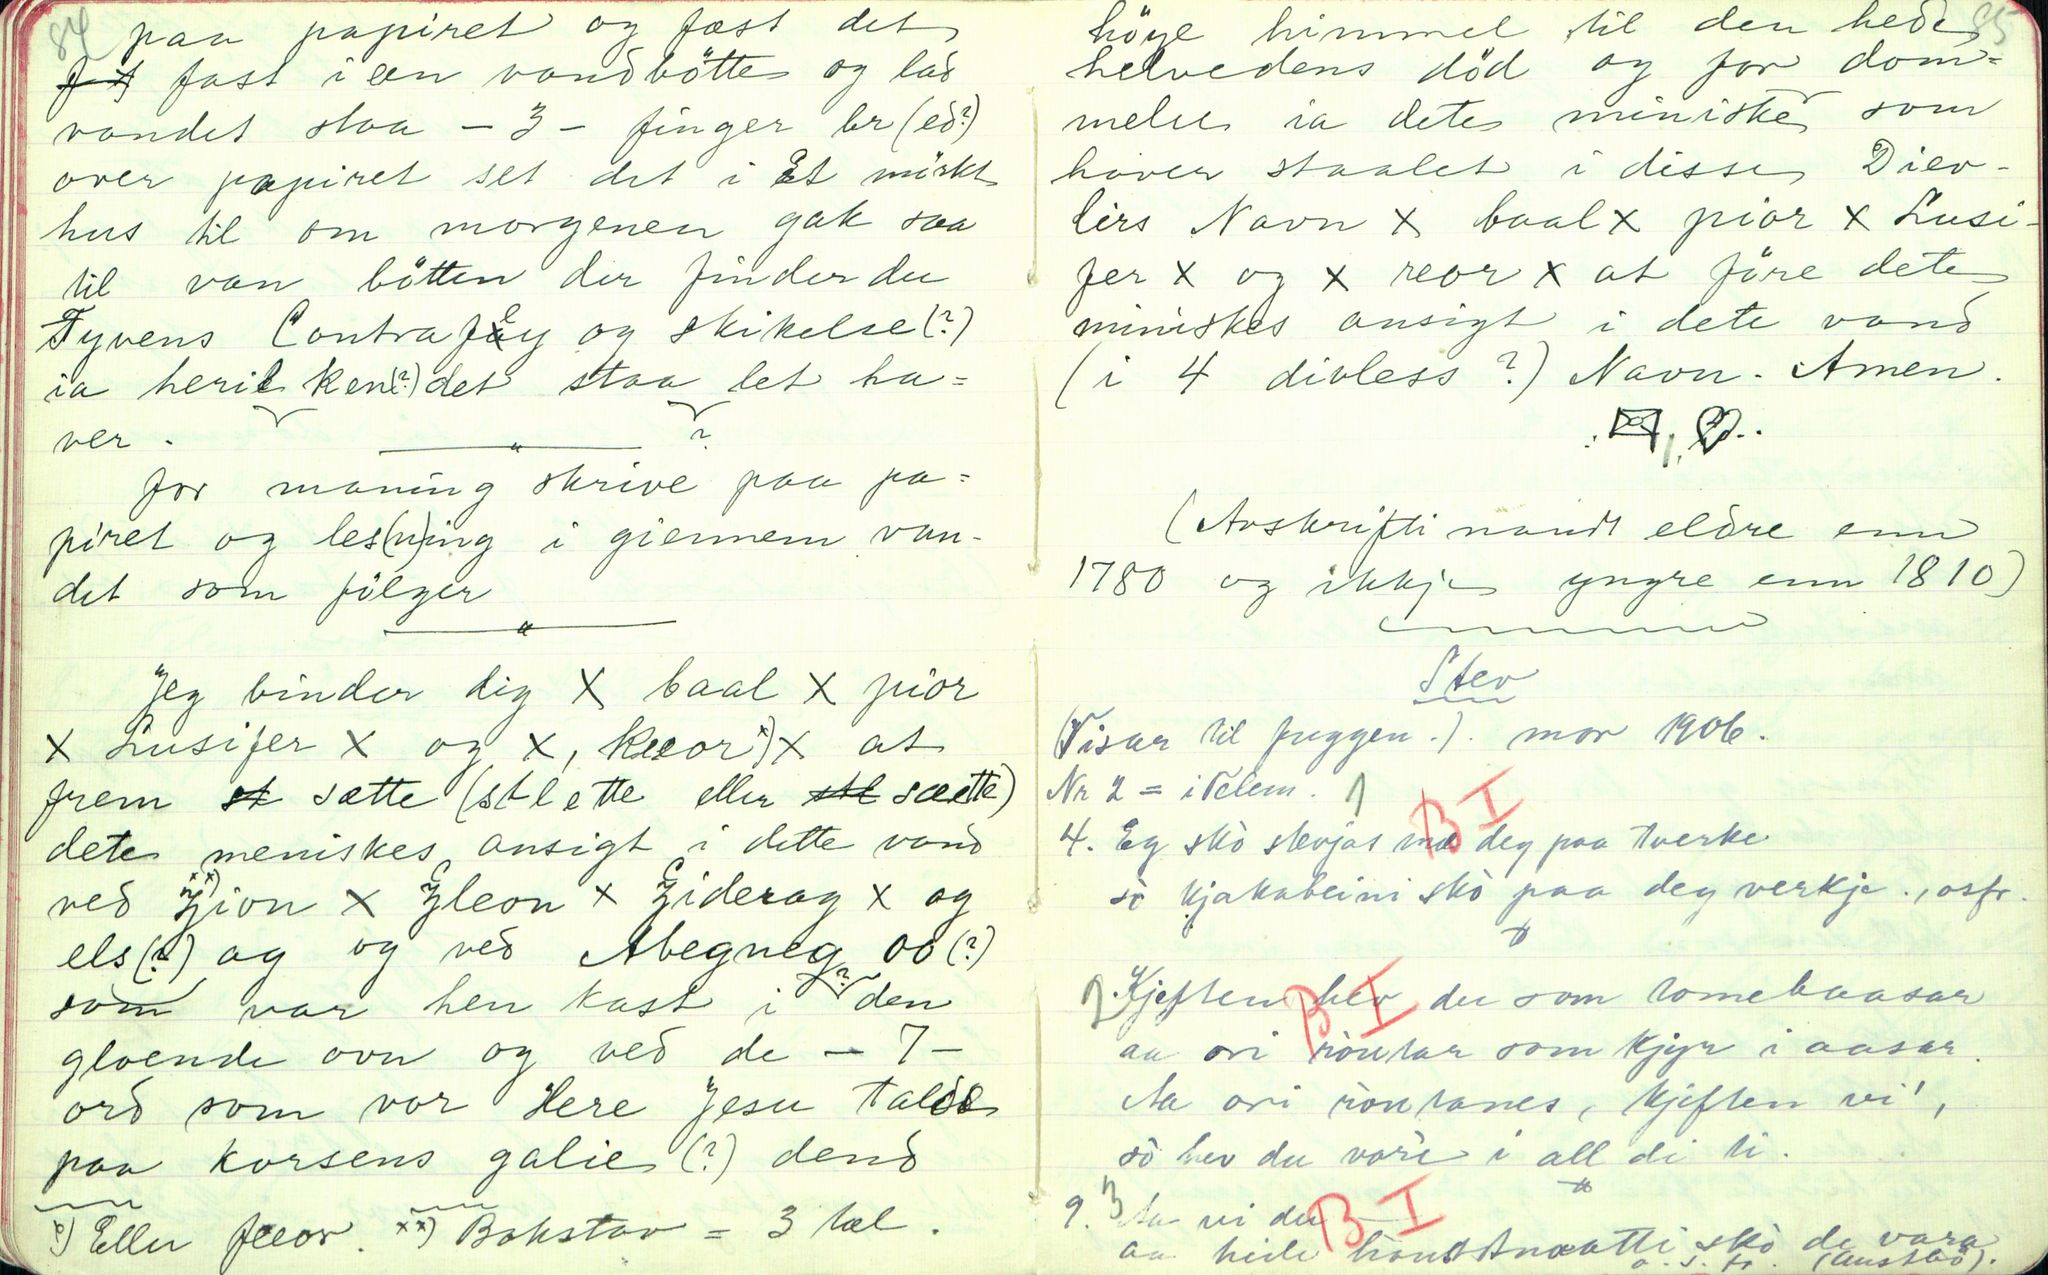 84
paa papiret og fæst det
fast i en vandbötte og lad
vandet staa - 3 - finger br(ed?)
over papiret set det i Et mörkt
hus til om morgenen gak saa
til van bötten der finder du
Tyvens og skikelse (?)
ia heril ken(?) det staa let ha=
ver. ?
for maning skrive paa pa=
piret og les(n)ing i giennem van-
det som fölger
Jeg binder dig X baal X pior
X Lusifer X og X, X at
frem sætte (stlette eller sætte)
dete meniskes ansigt i dette vand
ved Zion X Zleon X Ziderag X og
els(?) ag og ved Abegneg oo(?)
som var hen kast i ? den
gloende ovn og ved de - 7 -
ord som vor Here Jesu talde
paa korsens galie (?) dend
x) Eller feeor. xx) Bokstav = 3 tal.
85
höye himmel til den hede
helvedens död og for dom=
melse ia dete miniske som
haver staalet i disse Diev-
lers Navn X baal X pior X Lusi-
fer X og X reor X at före dete
miniskes ansigt i dete vand
(i 4 divless?) Navn. Amen.
(Avskrifti naudt eldre enn
1780 og ikkje yngre enn 1810)
Stev
(Visar til fuggen.). mor 1906.
Nr 2 = i Telem. 1
B I
4. Eg skò stevjas mæ deg paa tverke
sò kjakabeini skò paa deg verkje., osfr.
2 Kjeften hev du som tomebaasar
B I
aa ori ròutar som kjyr i aasar.
Aa ori ròutanes, kjeften vi',
sò hev du vòre i all di ti.
9. 3 Aa vi du —
B I
aa heile skò de vara
o. s. fr. (Austad).